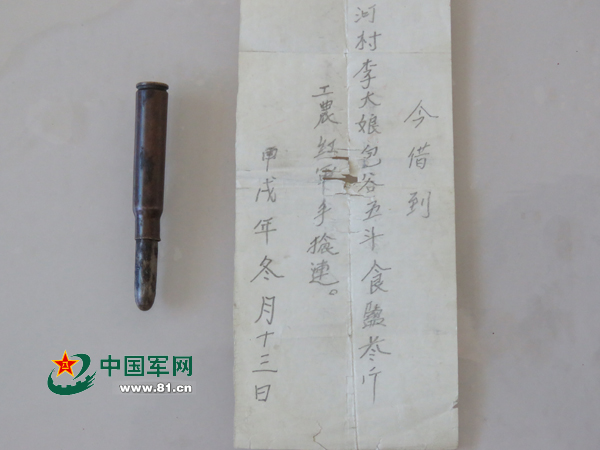 今借到
河村李大娘包谷五斗食盐叁斤
工農紅軍手搶連。
甲戌年冬月十三日
中国军网
www.81.cn